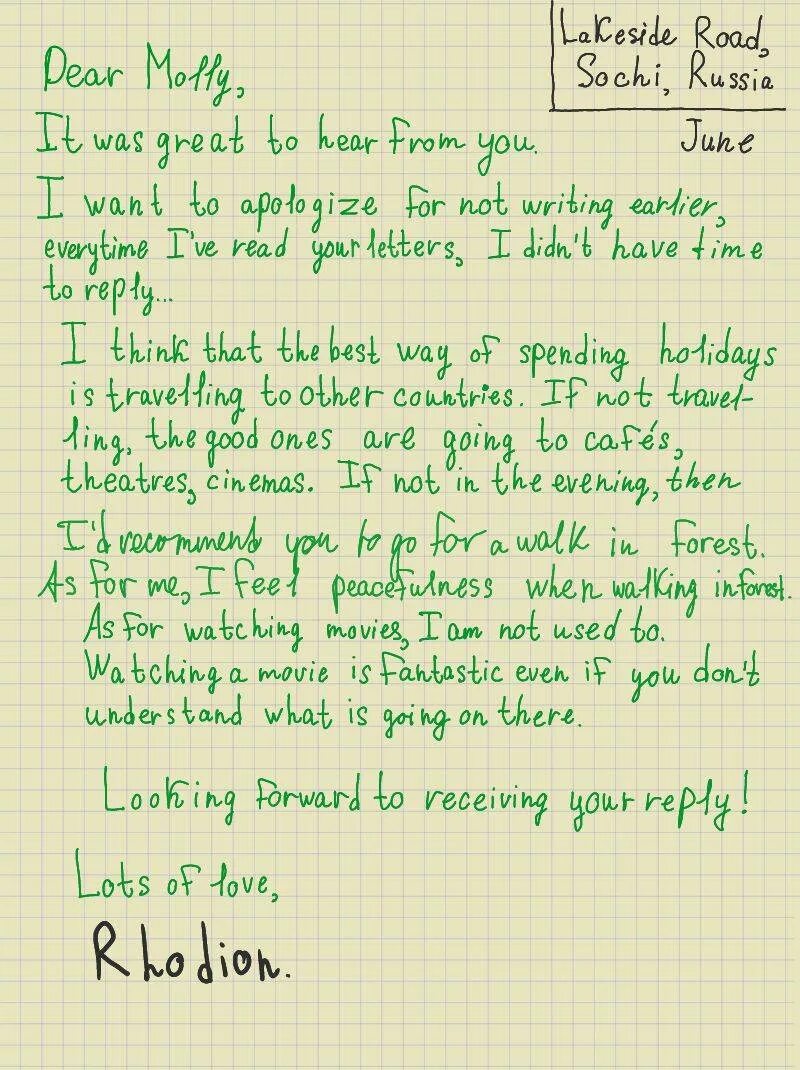 Lakeside Road,
Sochi, Russia
June
Dear Molly,
It was great to hear from you.
I want to apologize for not writing earlier,
everytime I've read your letters, I didn't have time
to reply...
I think that the best way of spending holidays
is travelling to other countries. If not travel-
ling, the good ones are going to cafés,
theatres, cinemas. If not in the evening, then
I'd recommend you to go for a walk in forest.
As for me, I feel peacefulness when walking in forest.
As for watching movies, I am not used to.
Watching a movie is fantastic even if you don't
understand what is going on there.
Looking forward to receiving your reply!
Lots of love,
Rhodion.